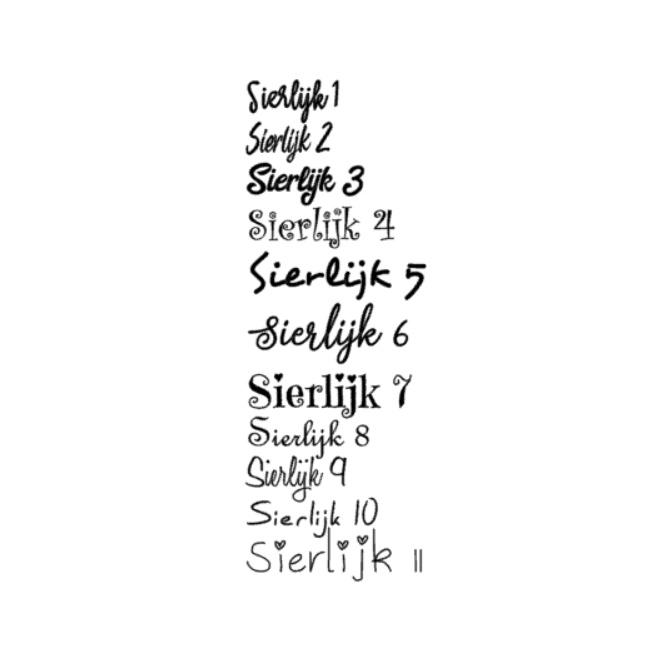 Sierlijk 1
Sierlijk 2
Sierlijk 3
Sierlijk 4
Sierlijk 5
Sierlijk 6
Sierlijk 7
Sierlijk 8
Sierlijk 9
Sierlijk 10
Sierlijk 11